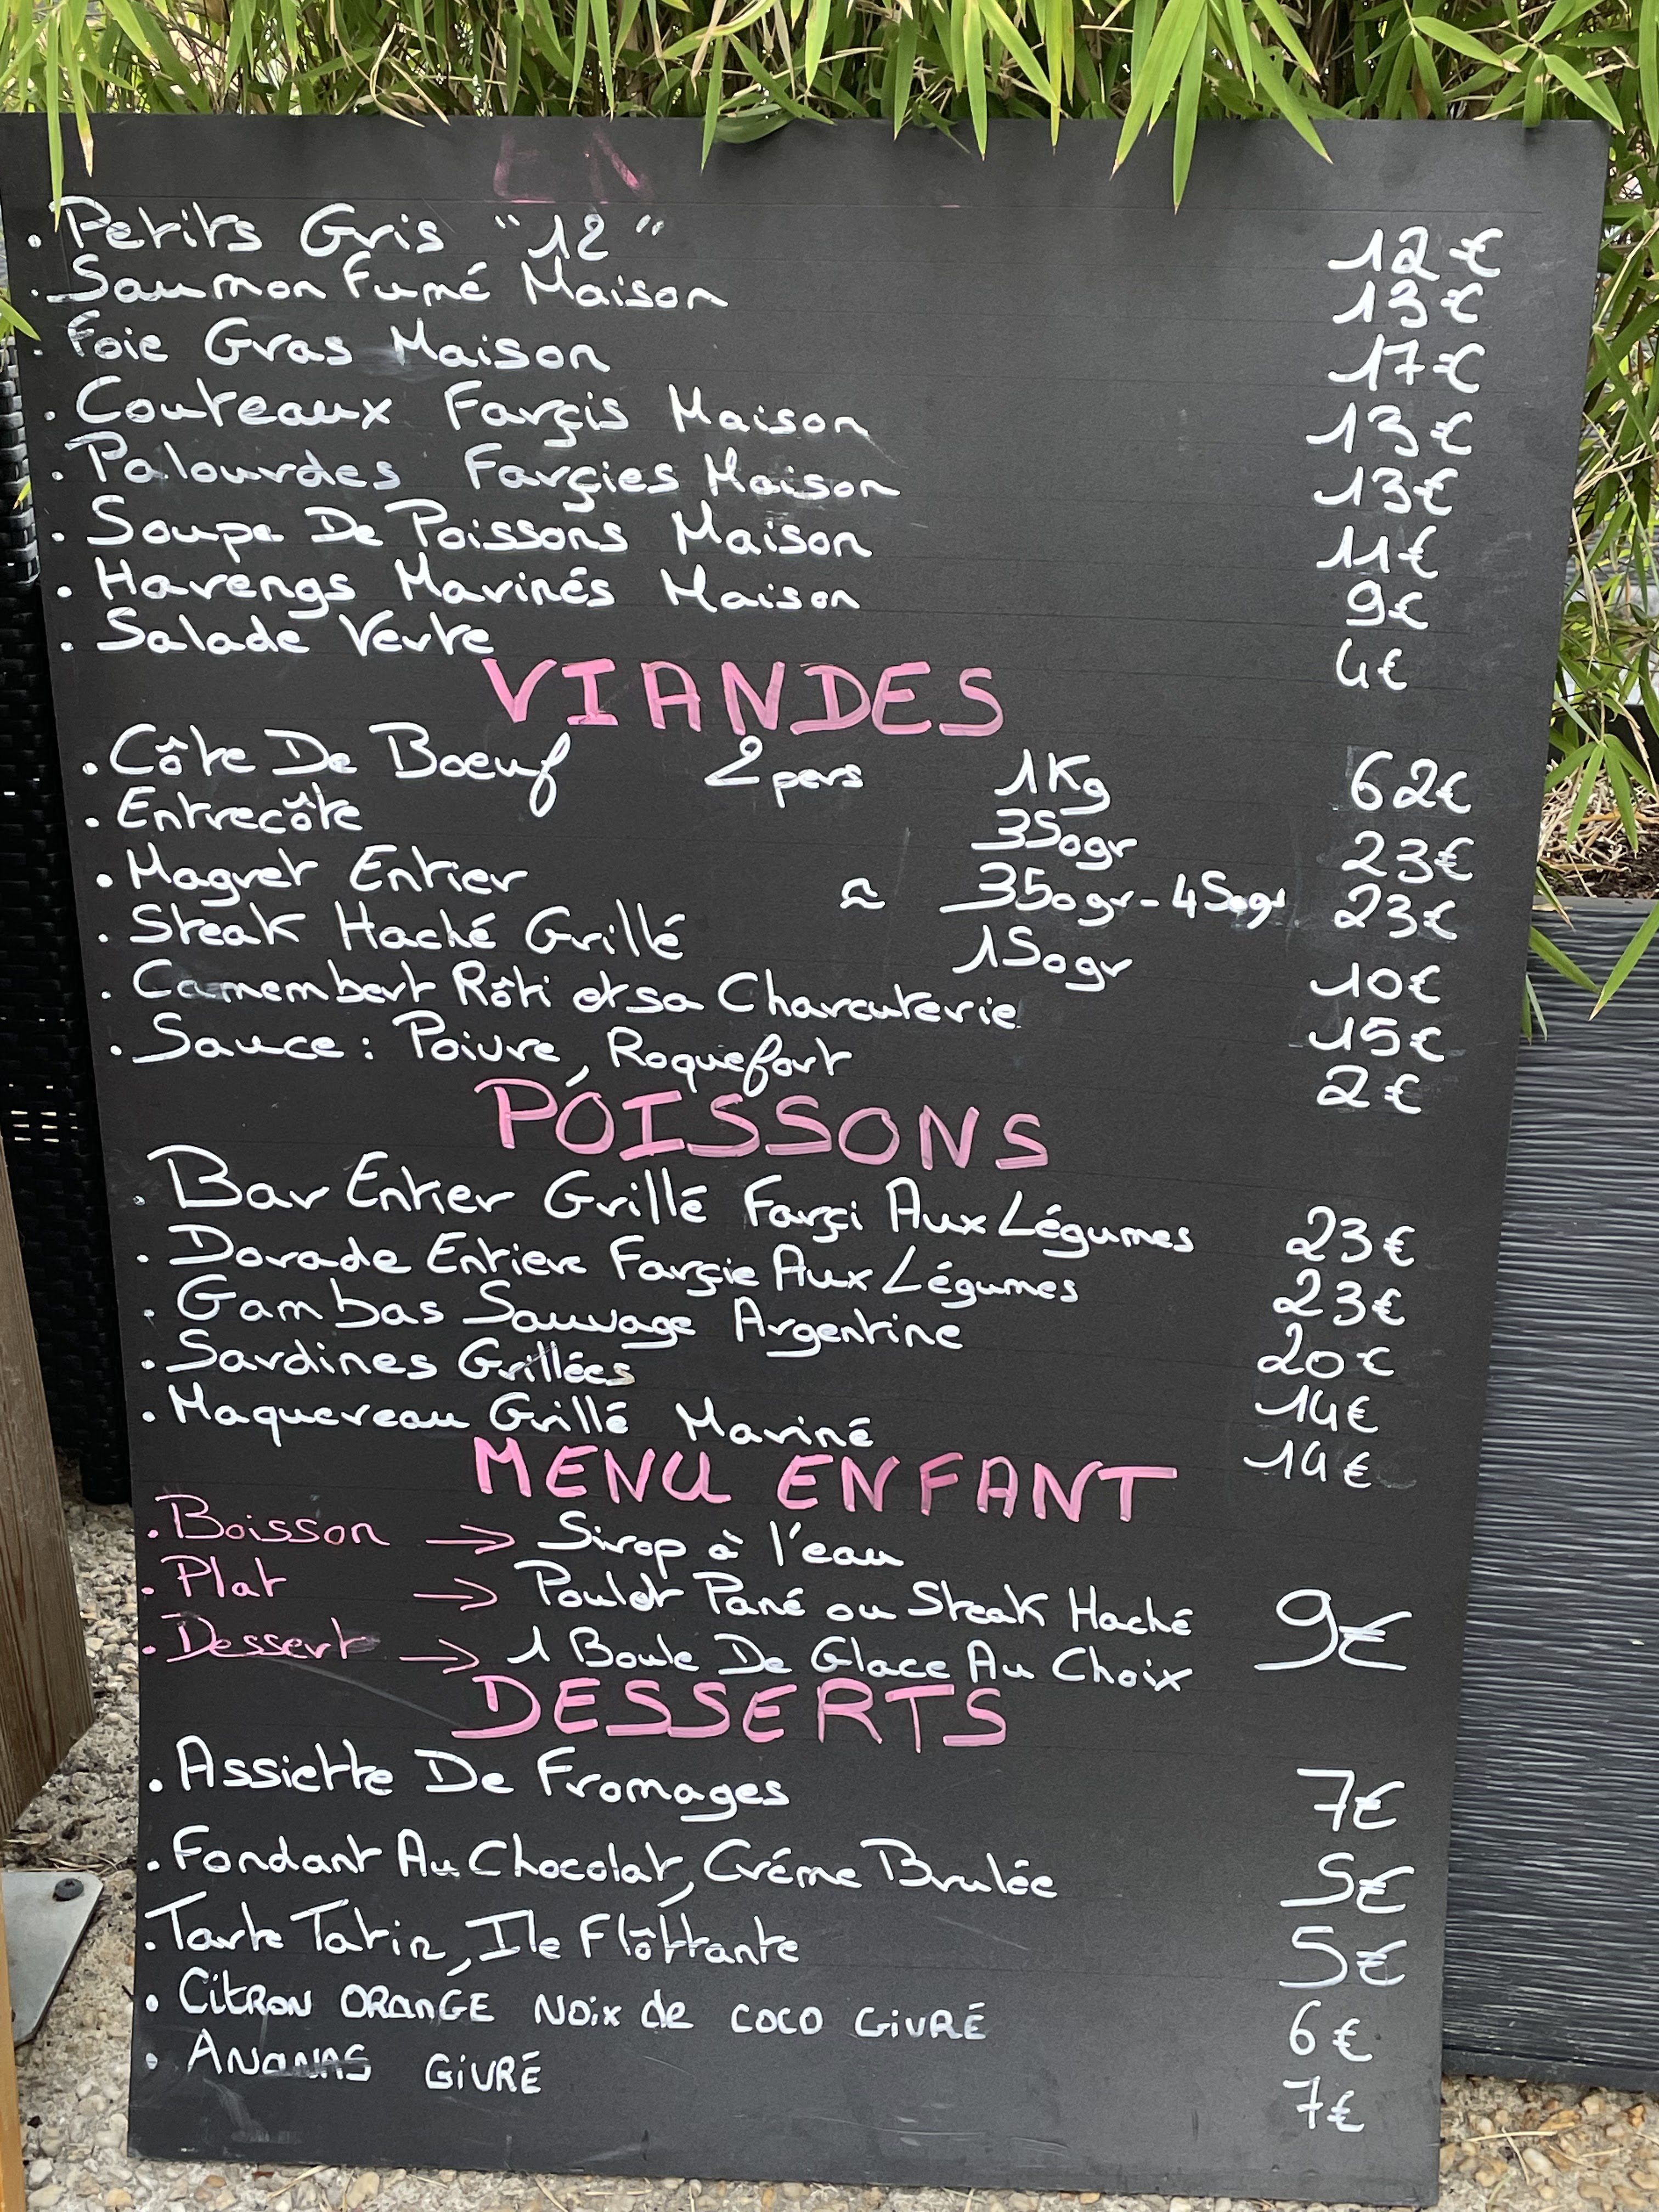 . Petits Gris "12" 12€
. Saumon Fumé Maison 13€
. Foie Gras Maison 17€
. Couteaux Farçis Maison 13€
. Palourdes Farçies Maison 13€
. Soupe De Poissons Maison 11€
. Harengs Marinés Maison 9€
. Salade Verte 4€
VIANDES
. Côte De Boeuf 2 pers 1Kg 62€
. Entrecôte 350gr 23€
. Magret Entier ≈ 350gr-450gr 23€
. Steak Haché Grillé 150gr 10€
. Camembert Rôti et sa Charcuterie 15€
. Sauce : Poivre, Roquefort 2€
POISSONS
. Bar Entier Grillé Farçi Aux Légumes 23€
. Dorade Entiere Farçie Aux Légumes 23€
. Gambas Sauvage Argentine 20€
. Sardines Grillées 14€
. Maquereau Grillé Mariné 14€
MENU ENFANT
. Boisson → Sirop à l'eau
. Plat → Poulet Pané ou Steak Haché 9€
. Dessert → 1 Boule De Glace Au Choix
DESSERTS
. Assiette De Fromages 7€
. Fondant Au Chocolat, Créme Brulée 5€
. Tarte Tatin, Ile Flôttante 5€
. CitRON ORANGE NOix de COCO GiVRÉ 6€
. ANANAS GiVRÉ 7€